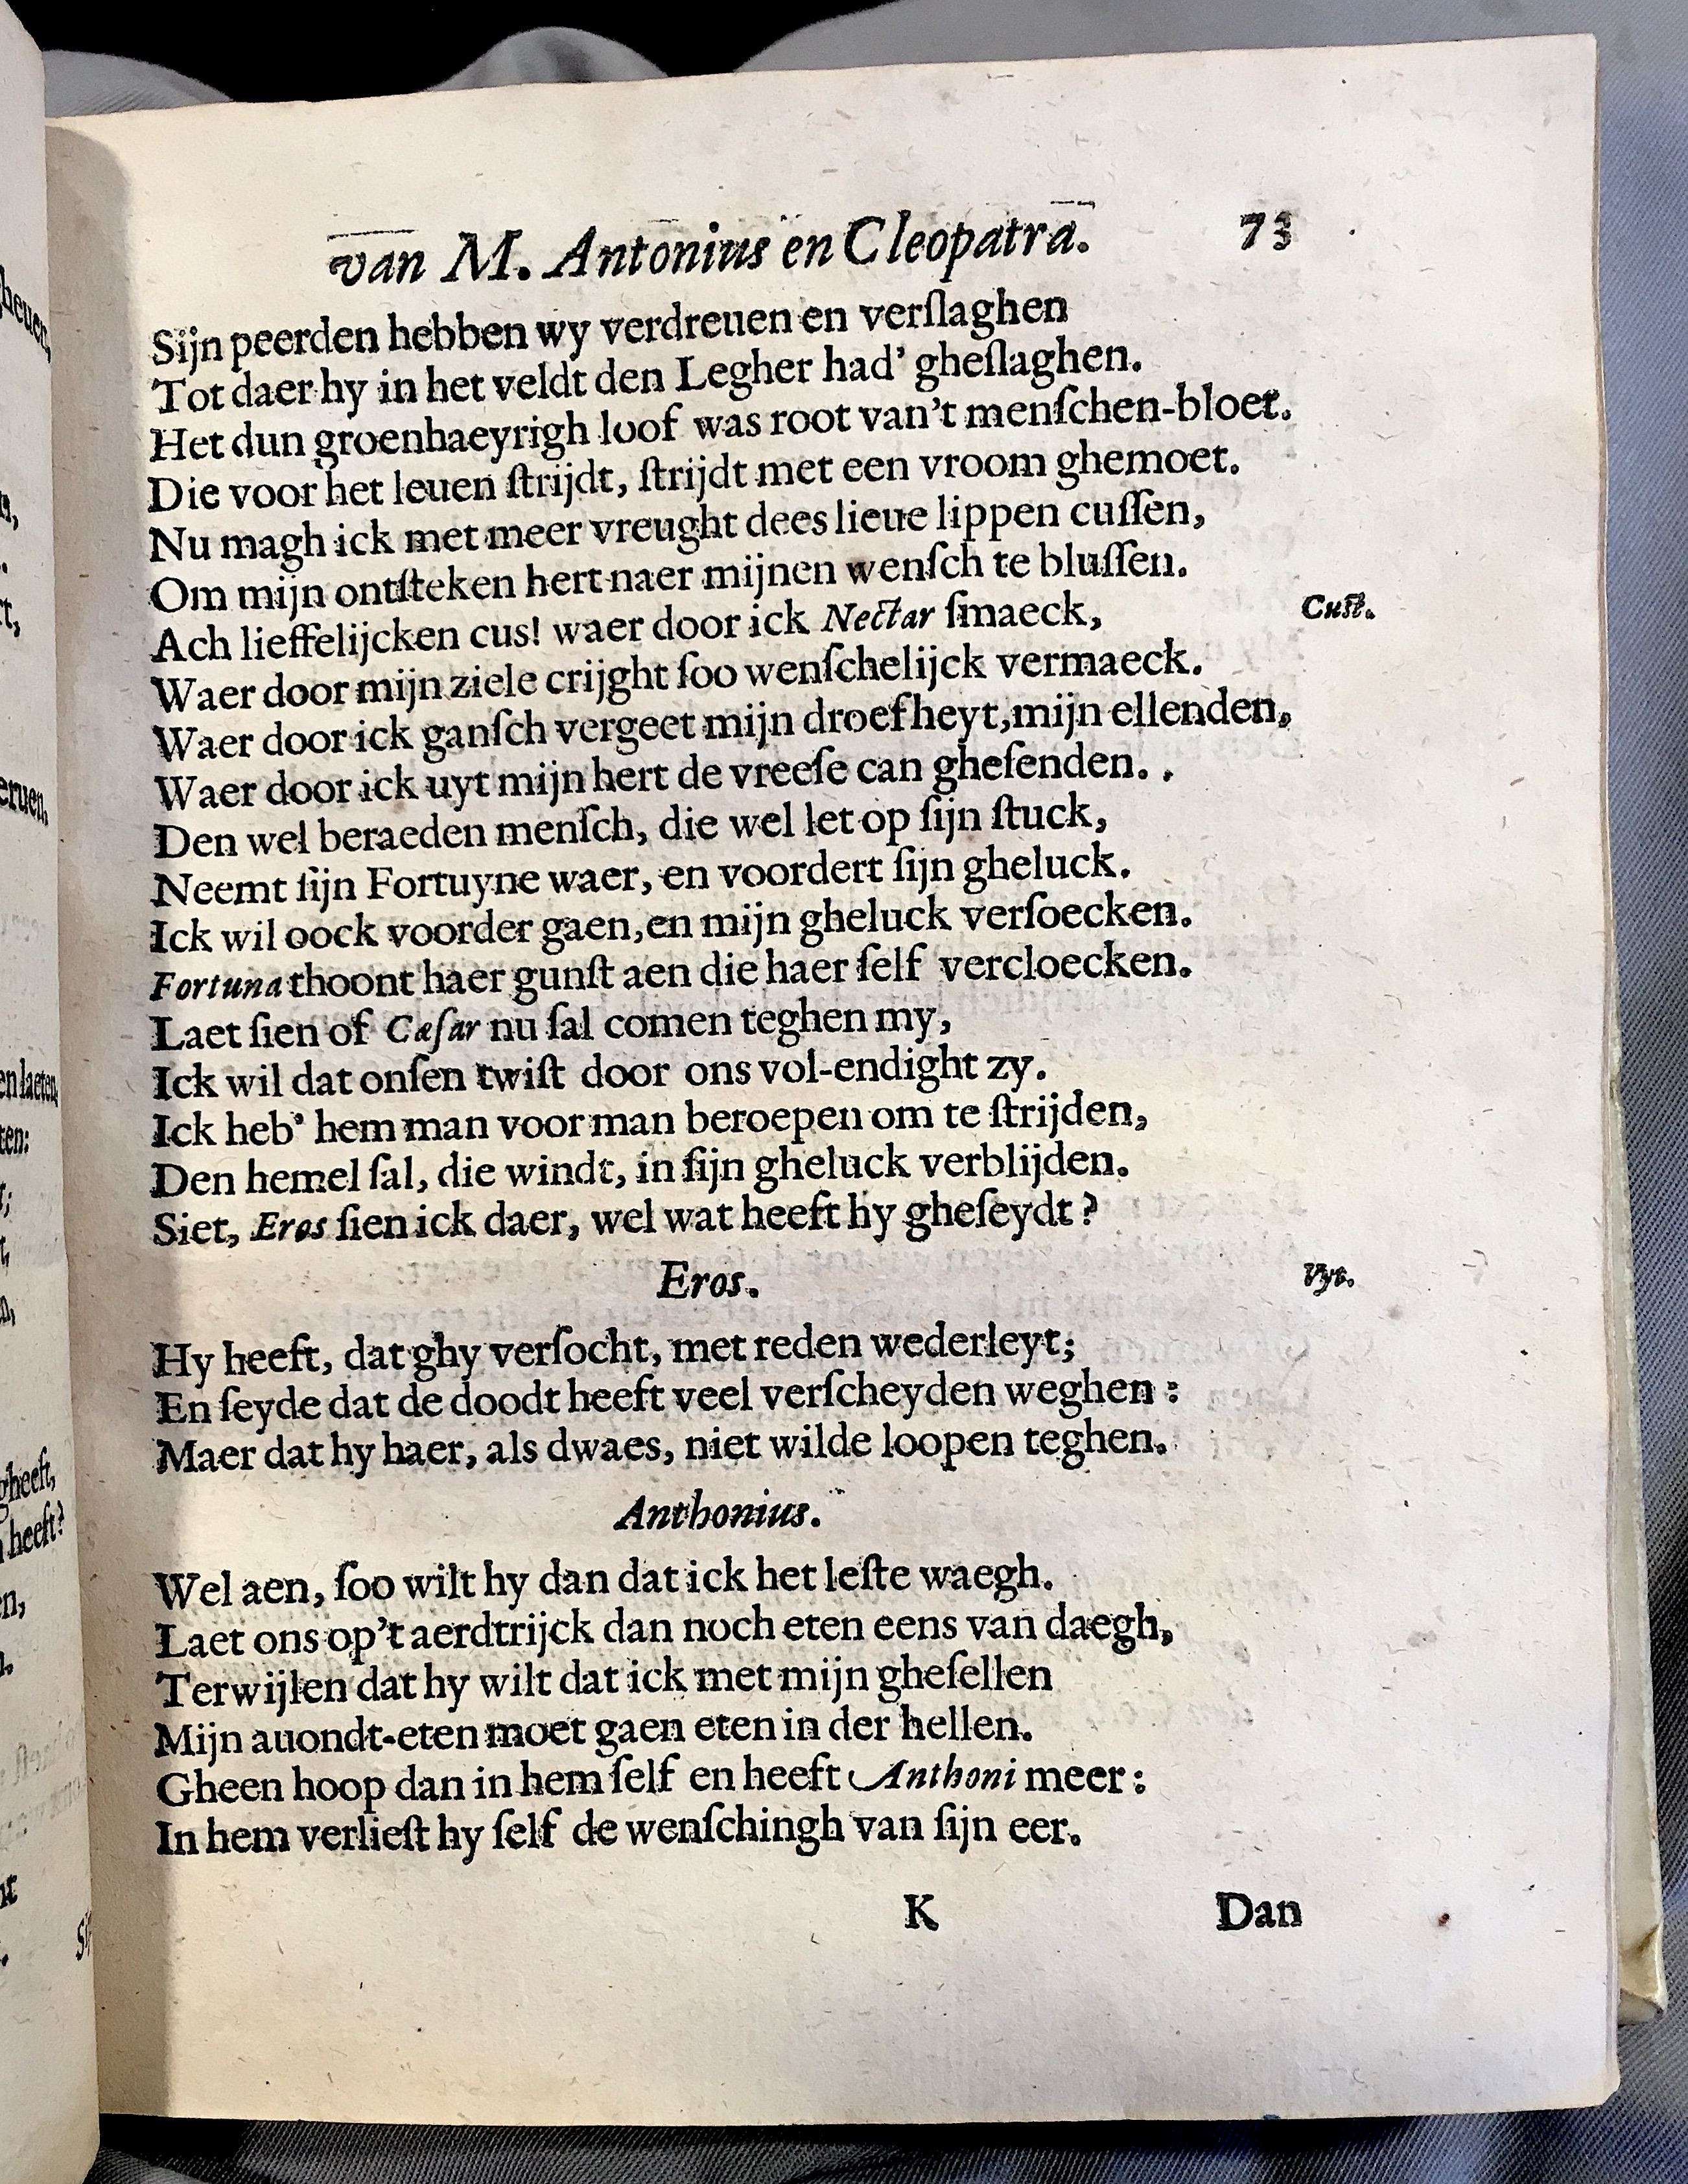 van M. Antonius en Cleopatra. 73
Sijn peerden hebben wy verdreuen en verſlaghen
Tot daer hy in het veldt den Legher had' gheſlaghen.
Het dun groenhaeyrigh loof was root van't menſchen-bloet.
Die voor het leuen ſtrijdt, ſtrijdt met een vroom ghemoet.
Nu magh ick met meer vreught dees lieue lippen cuſſen,
Om mijn ontſteken hert naer mijnen wenſch te bluſſen.
Ach lieffelijcken cus! waer door ick Nectar ſmaeck, Cuſt.
Waer door mijn ziele crijght ſoo wenſchelijck vermaeck.
Waer door ick ganſch vergeet mijn droefheyt, mijn ellenden,
Waer door ick uyt mijn hert de vreeſe can gheſenden.
Den wel beraeden menſch, die wel let op ſijn ſtuck,
Neemt ſijn Fortuyne waer, en voordert ſijn gheluck.
Ick wil oock voorder gaen, en mijn gheluck verſoecken.
Fortuna thoont haer gunſt aen die haer ſelf vercloecken.
Laet ſien of Cæſar nu ſal comen teghen my,
Ick wil dat onſen twiſt door ons vol-endight zy.
Ick heb' hem man voor man beroepen om te ſtrijden,
Den hemel ſal, die windt, in ſijn gheluck verblijden.
Siet, Eros ſien ick daer, wel wat heeft hy gheſeydt?
Eros. Vyt.
Hy heeft, dat ghy verſocht, met reden wederleyt;
En ſeyde dat de doodt heeft veel verſcheyden weghen:
Maer dat hy haer, als dwaes, niet wilde loopen teghen.
Anthonius.
Wel aen, ſoo wilt hy dan dat ick het leſte waegh.
Laet ons op't aerdtrijck dan noch eten eens van daegh,
Terwijlen dat hy wilt dat ick met mijn gheſellen
Mijn auondt-eten moet gaen eten in der hellen.
Gheen hoop dan in hem ſelf en heeft Anthoni meer:
In hem verlieſt hy ſelf de wenſchingh van ſijn eer.
K Dan